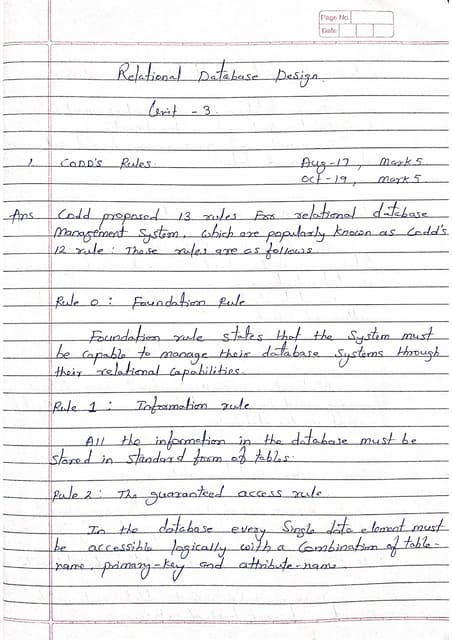 Page No.
Date
Relational Database Design
Unit - 3.
1 CODD'S Rules. Aug-17, Mark 5
Oct-19, mark 5
Ans Codd proposed 13 rules For relational database
Management System. which are popularly known as Codd's
12 rule: These rules are as follows.
Rule 0: Foundation Rule
Foundation rule states that the System must
be capable to manage their database Systems through
their relational Capabilities.
Rule 1: Information rule
All the information in the database must be
Stored in standard form of tables.
Rule 2: The guaranteed access rule
In the database every Single data element must
be accessible logically with a Combination of table-
name, primary-key and attribute-name.